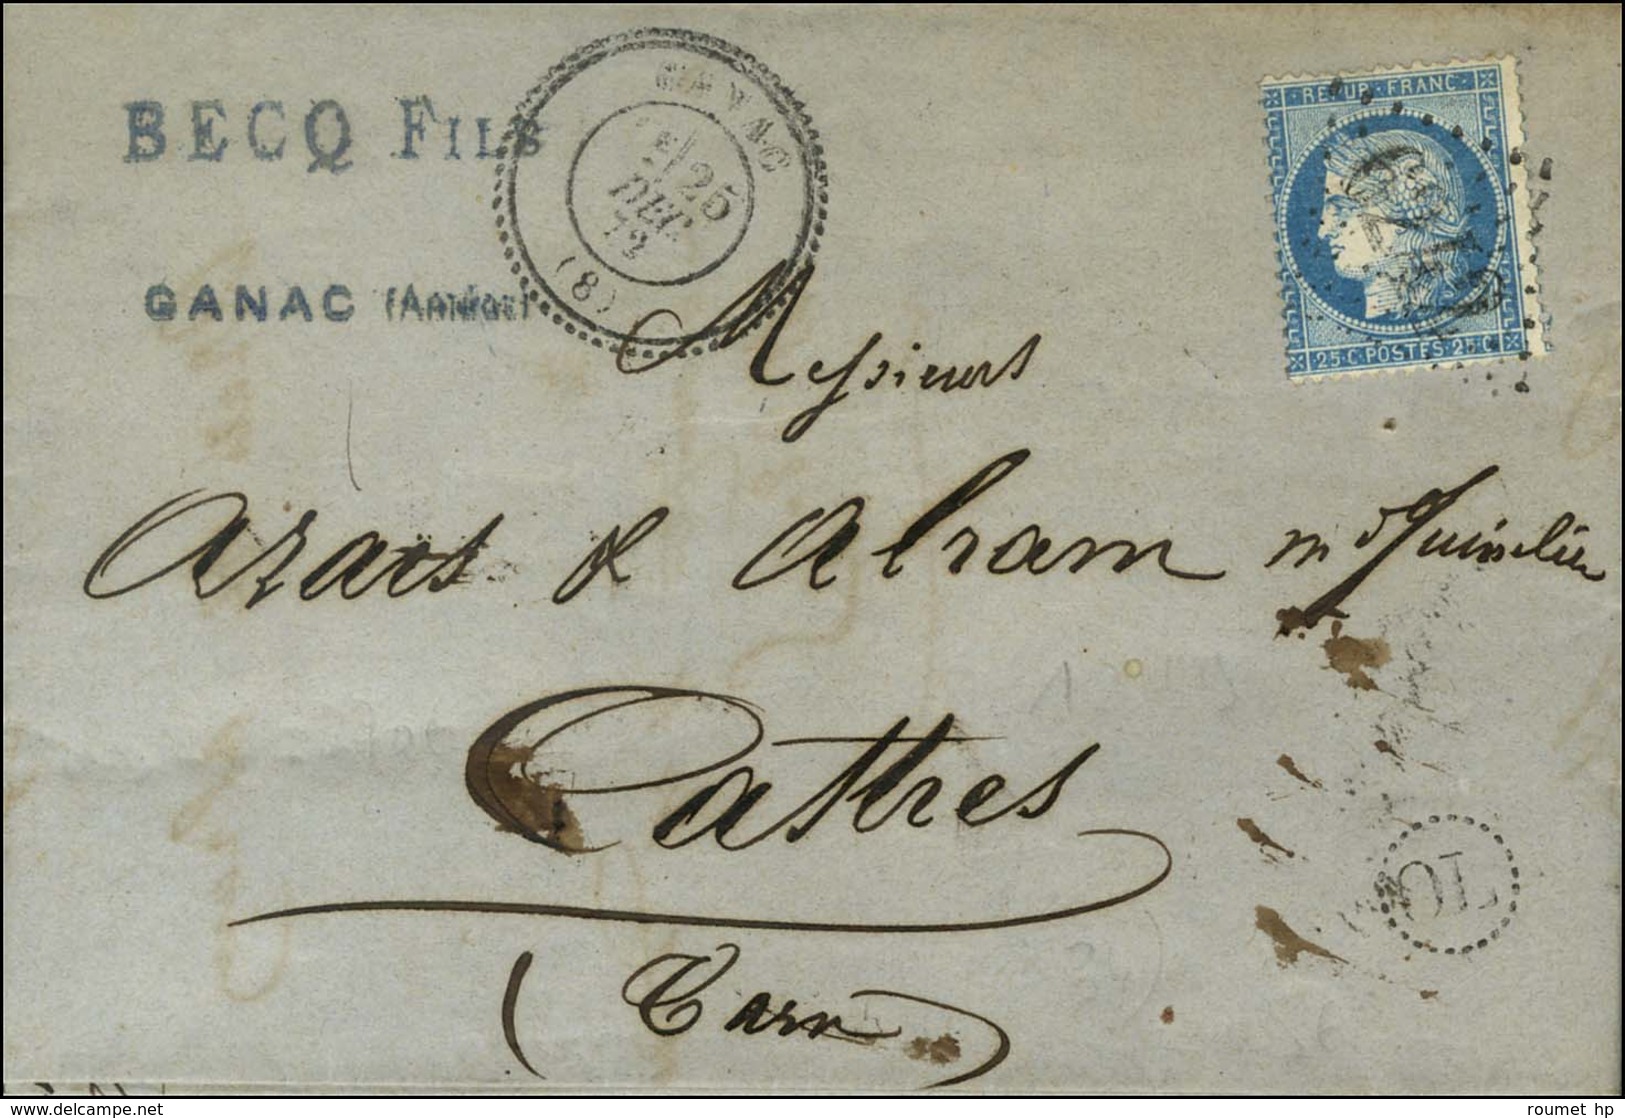 BECQ FILS
GANAC (Ariège)
GANAC
25
DEC.
72
(8)
REPUB. FRANC.
25.C.POSTES.25.C
Messieurs
Arais & Abram md Quincalier
Castres
(Tarn)
OL
roumet hp